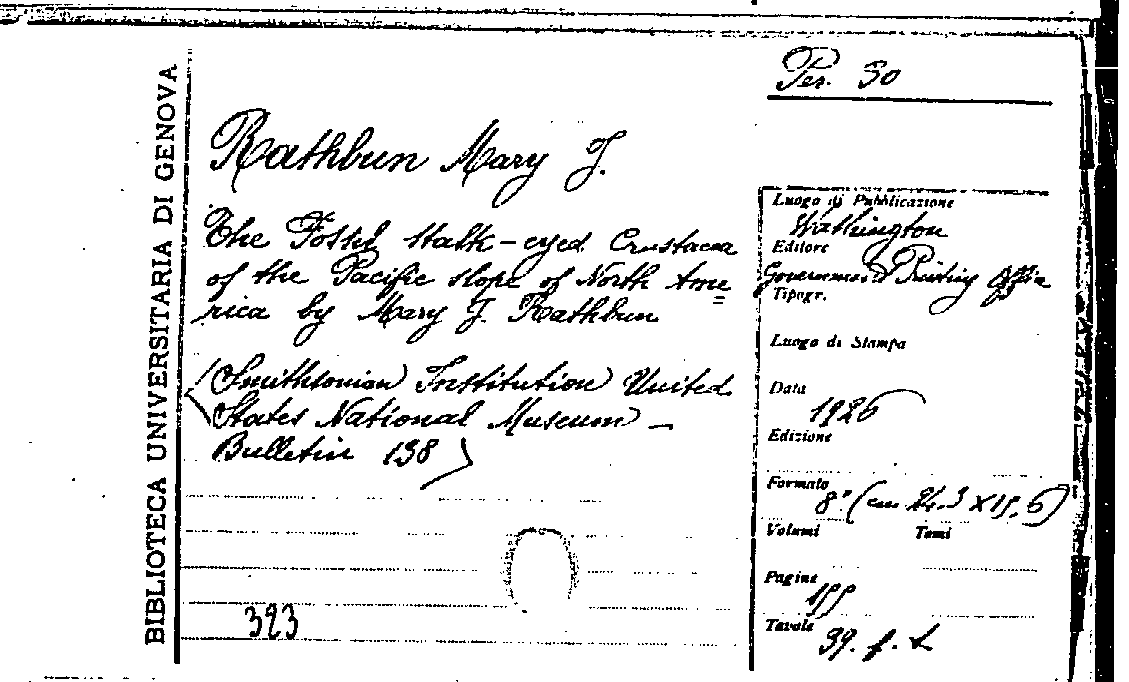 BIBLIOTECA UNIVERSITARIA DI GENOVA
Per. 30
Rathbun Mary J.
The Fossil stalk-eyed Crustacea
of the Pacific slope of North Ame=
rica by Mary J. Rathbun
(Smithsonian Institution United
States National Museum -
Bulletin 138)
323
Luogo di Pubblicazione
Washington
Editore
Government Printing Office
Tipogr.
Luogo di Stampa
Data
1926
Edizione
Formato
8° (cm 24.3 X 15,6)
Volumi Tomi
Pagine
155
Tavole
39. f. t.